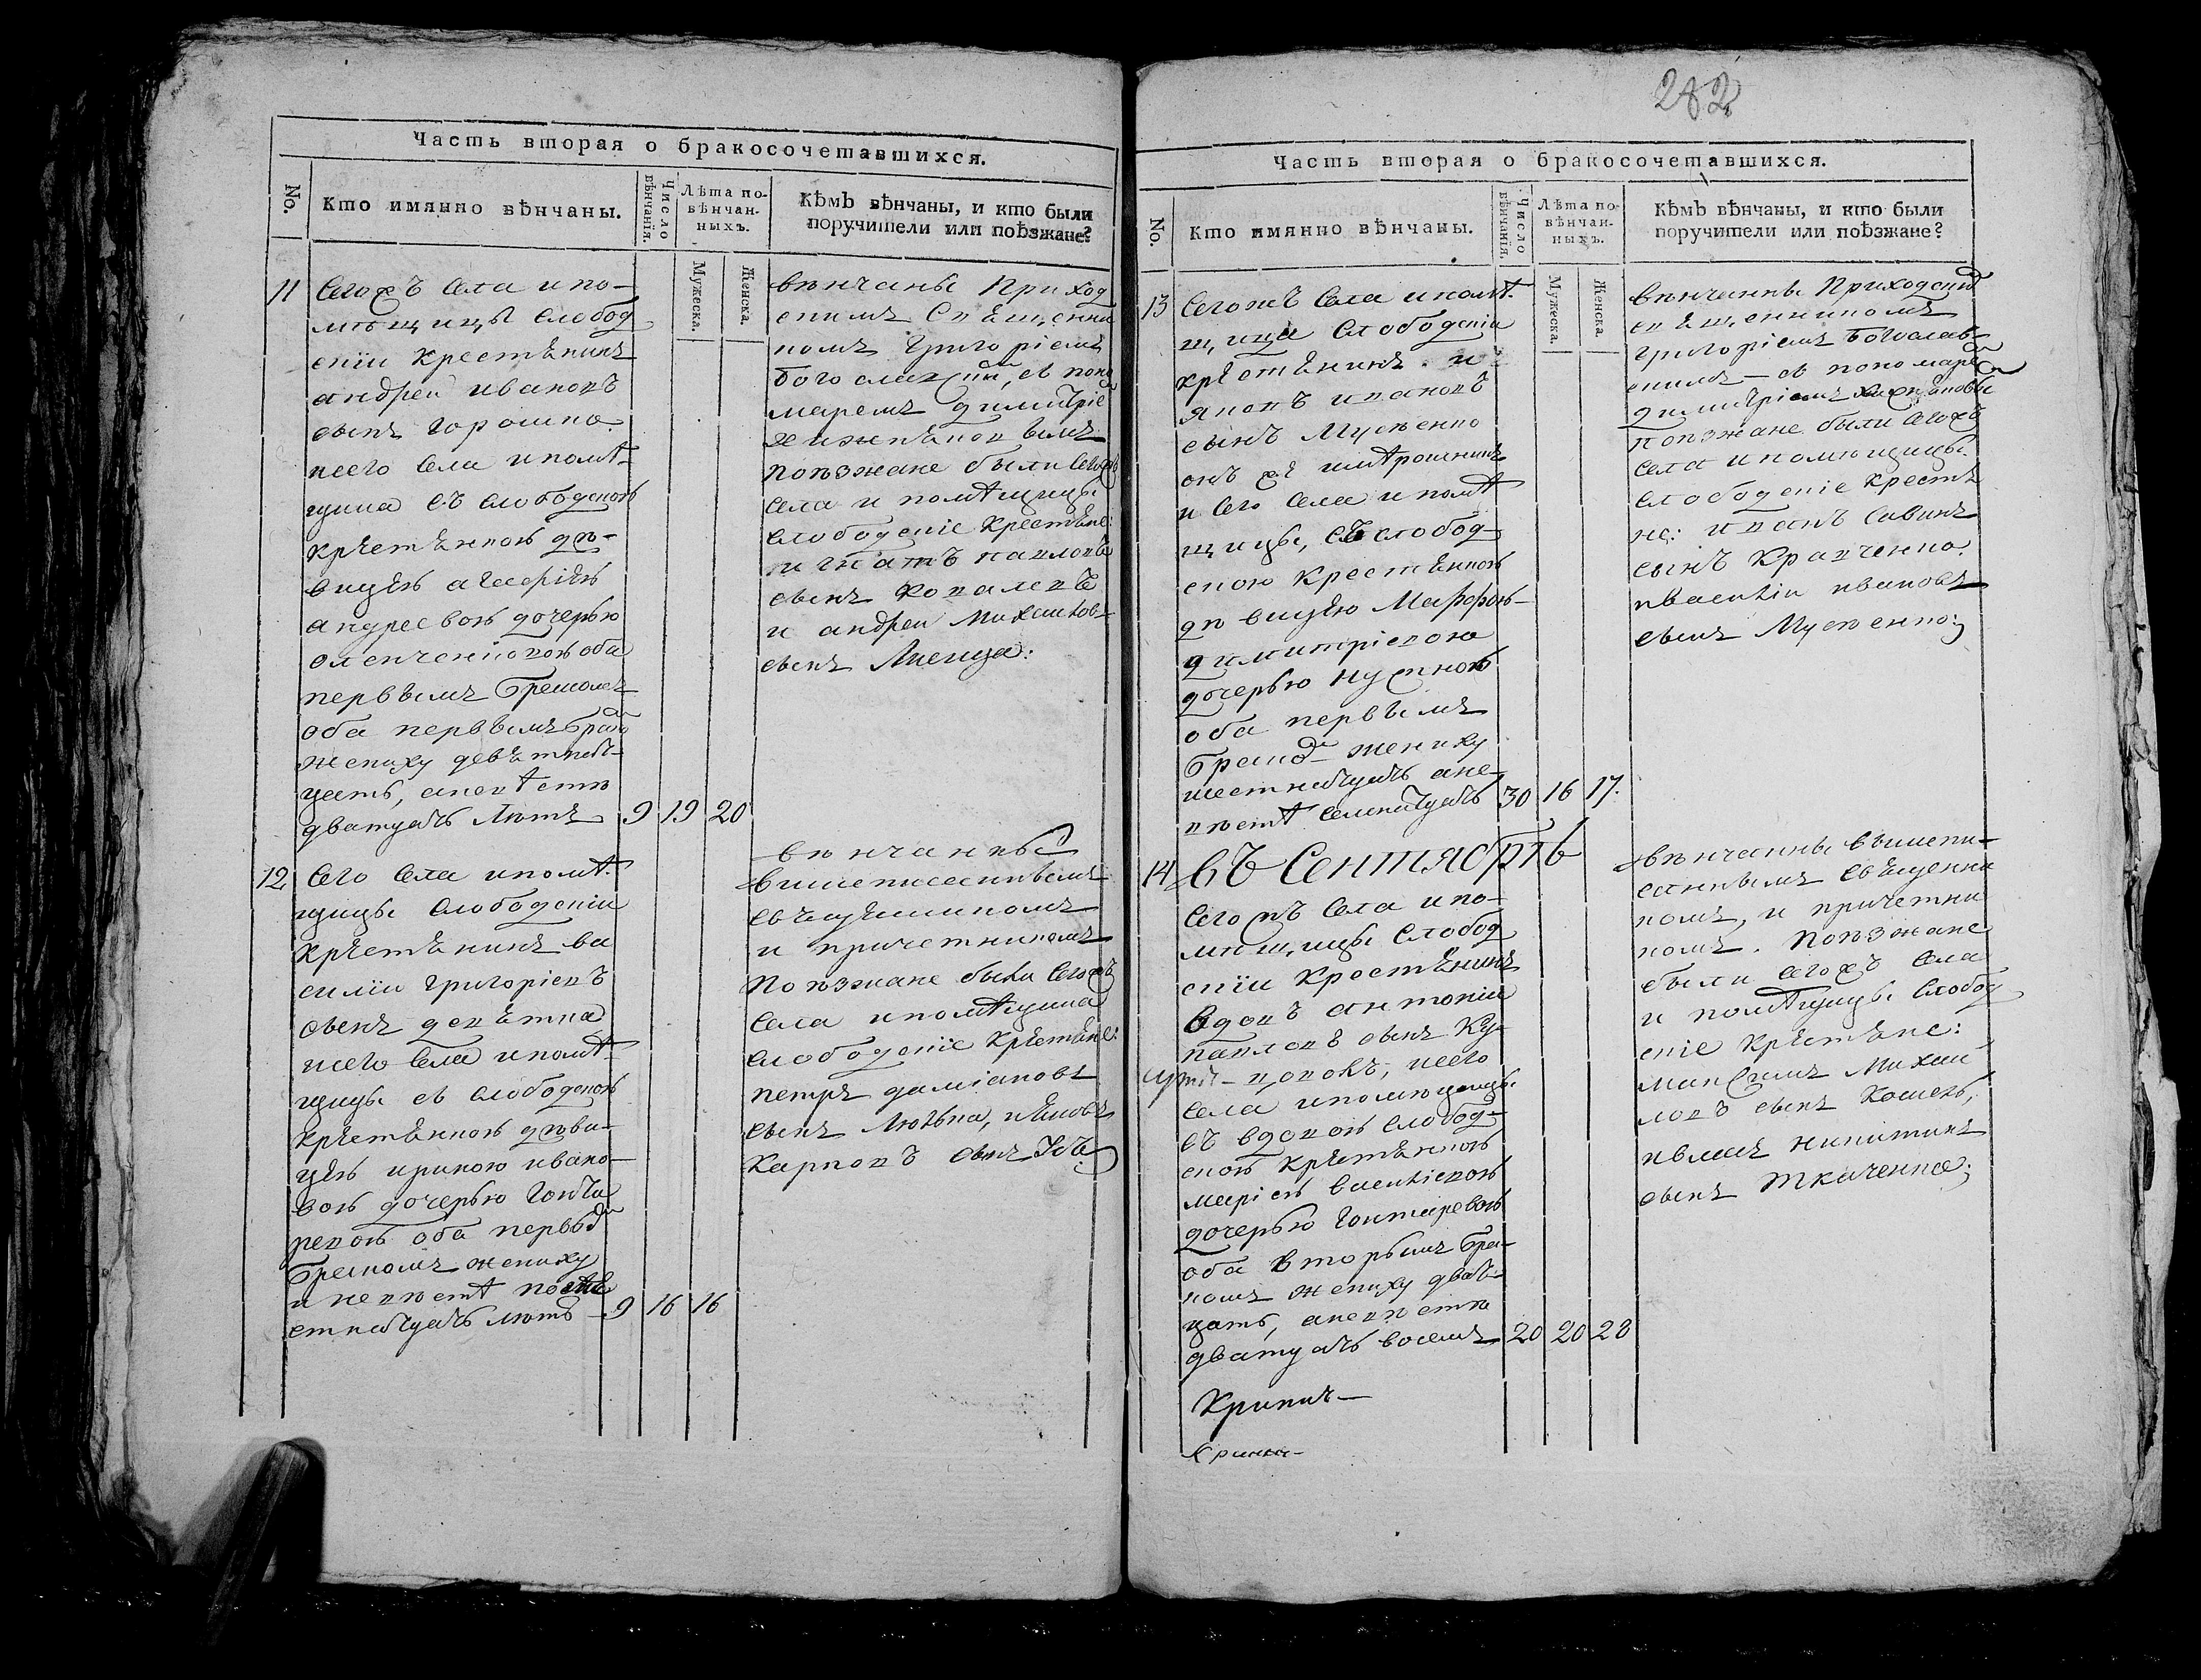 Часть вторая о бракосочетавшихся.
No.
Кто имянно вѣнчаны.
Число вѣнчанія.
Лѣта по-
вѣнчан-
ныхъ.
Мужеска.
Женска.
Кѣмъ вѣнчаны, и кто были
поручители или поѣзжане?
11
Сегожъ Села и по-
мѣщицы Слобод
скїи крестѣнинъ
андреи ивановъ
сынъ горошко
исего Села и помѣ-
щика съ Слободскою
крѣстѣнкою дѣ-
вицѣю агафіѣю
андреевою дочерью
оба
первымъ бракомъ
оба первымъ брако
жениху девѣтнат-
цать, аневѣстѣ
дватцать лѣтъ
9 19 20
вѣнчаны Приход
скимъ Свѣщенни
комъ григоріемъ
богославскимъ, съ поно
маремъ димитріе
хижнѣковымъ
поѣзжане были Сегожъ
Села и помѣщицы
Слободскіе крестѣне:
игнатъ павловъ
сынъ ковалевъ
и андреи михаилов-
сынъ
12
Сего Села ипомѣ-
щицы Слободскіи
крѣстѣнинъ ва
силїи григоріевъ
сынъ девѣтка
исего Села и помѣ-
щицы съ Слободскою
крѣстѣнкою дѣви-
цѣю ириною ивано-
вою дочерью гонча
ревою оба первы
бракомъ жениху
и невѣстѣ по ше
стнатцать лѣтъ
9 16 16
вѣнчаны
вишеписаннымъ
свѣщенникомъ
и причетникомъ
Поѣзжане были Сегожъ
Села и помѣщика
слободскіе крѣстѣне:
петръ даміановъ
сынъ
карповъ сынъ
282
Часть вторая о бракосочетавшихся.
No.
Кто имянно вѣнчаны.
Число вѣнчанія.
Лѣта по-
вѣнчан-
ныхъ.
Мужеска.
Женска.
Кѣмъ вѣнчаны, и кто были
поручители или поѣзжане?
13
Сегожъ Села ипомѣ-
щица Слободскіи
крѣстѣнинъ. и
яковъ ивановъ
сынъ Мусѣенко
онъ жѣ
и Сего Села и помѣ
щицы, съ слобод-
скою крестѣнкою
дѣвицѣю Марфою
димитріевою
дочерью
оба первымъ
брако жениху
шестнатцать ане-
вѣстѣ Семнатцать
30 16 17.
вѣнчанны Приходски
свѣщенникомъ
григоріемъ богослав-
скимъ - съ пономаре
димитріемъ
поѣзжане были Сегожъ
Села и помѣщицы
Слободскіе крестѣ
не: иванъ Савинъ
сынъ кравченко.
ивасиліи ивановъ
сынъ Мусѣенко;
14
въ Сентябрѣ
Сегожъ Села и по-
мѣщицы Слобод
скїи крестѣнинъ
вдовъ антоніи
павловъ сынъ
исего
Села ипомѣщицы
съ вдовою слобод-
скою крѣстѣнкою
маріею василіевою
дочерью гончаревою
оба вторымъ бра-
комъ жениху дват-
цать, аневѣстѣ
дватцать восемъ
20 20 28
вѣнчанны вышепи-
саннымъ свѣщенни
комъ, и причетни
комъ. поѣзжане
были сегожъ Села
и помѣщицы Слобод
скіе крѣстѣне:
максимъ михаи
ловъ сынъ
никитинъ
сынъ Ткаченко;